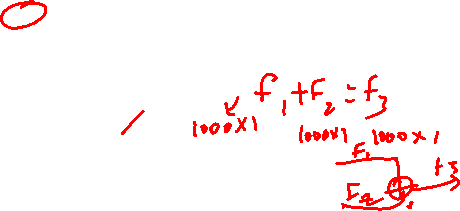 f₁+f₂=f₃
1000×1 1000×1 1000×1
F₁
f3
F₂